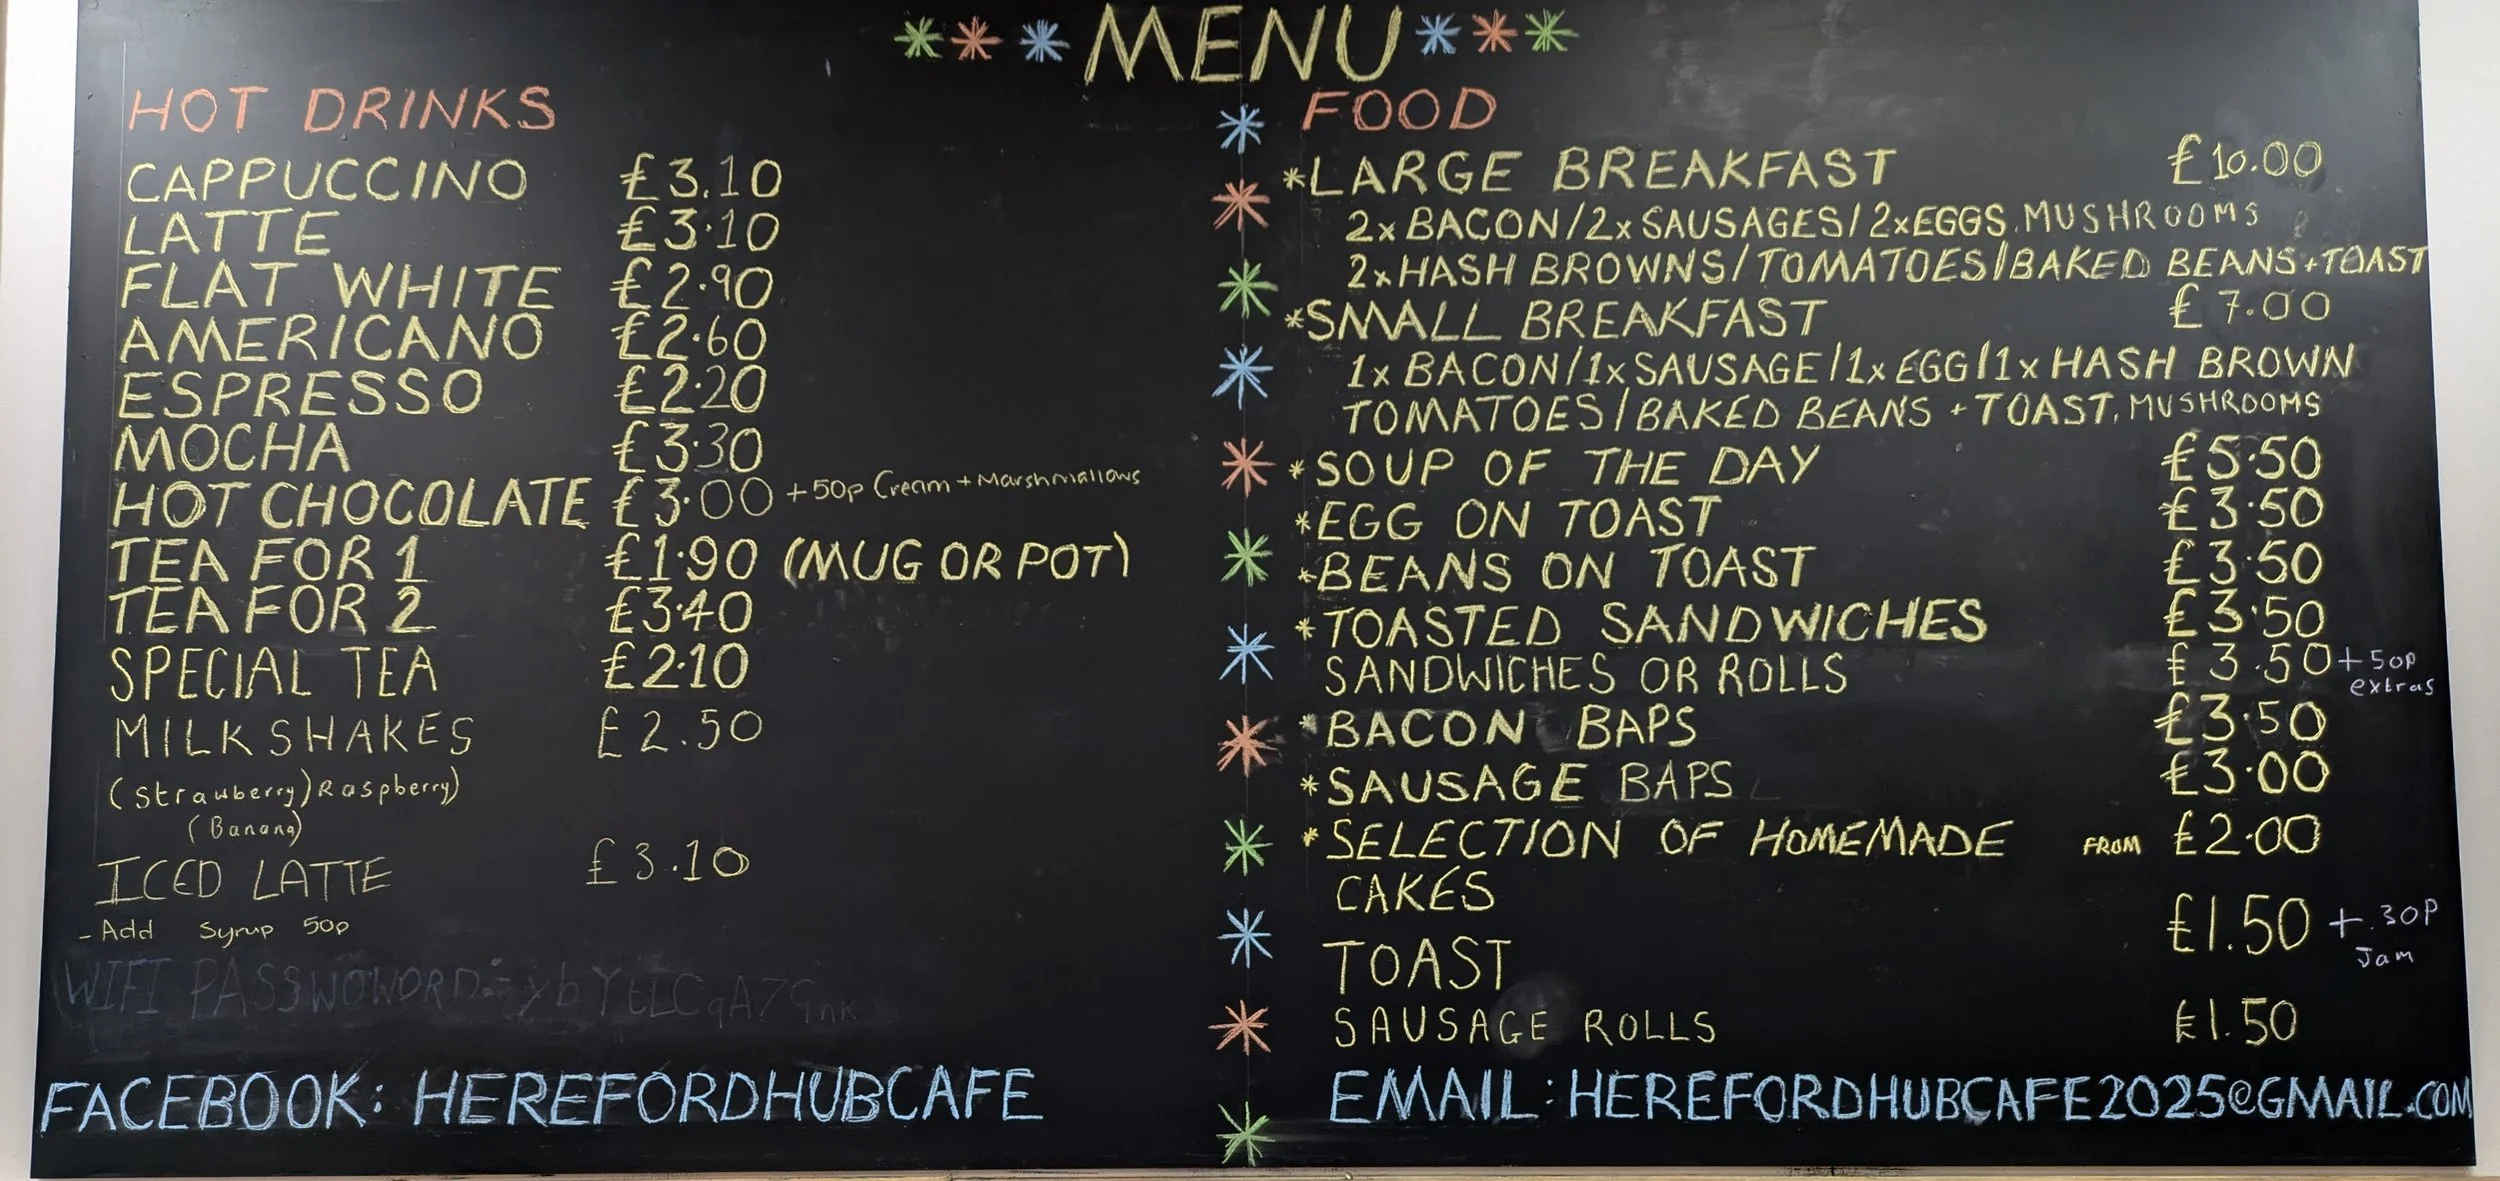 MENU
HOT DRINKS
CAPPUCCINO £3.10
LATTE £3.10
FLAT WHITE £2.90
AMERICANO £2.60
ESPRESSO £2.20
MOCHA £3.30
HOT CHOCOLATE £3.00 +50p Cream + Marshmallows
TEA FOR 1 £1.90 (MUG OR POT)
TEA FOR 2 £3.40
SPECIAL TEA £2.10
MILKSHAKES £2.50
(Strawberry) Raspberry)
(Banana)
ICED LATTE £3.10
- Add Syrup 50p
WIFI PASSWOWORD
FACEBOOK: HEREFORDHUBCAFE
FOOD
*LARGE BREAKFAST £10.00
2x BACON/2x SAUSAGES/2xEGGS, MUSHROOMS
2xHASH BROWNS/TOMATOES/BAKED BEANS+TOAST
*SMALL BREAKFAST £7.00
1x BACON/1x SAUSAGE/1x EGG/1x HASH BROWN
TOMATOES/BAKED BEANS + TOAST, MUSHROOMS
*SOUP OF THE DAY £5.50
*EGG ON TOAST £3.50
*BEANS ON TOAST £3.50
*TOASTED SANDWICHES £3.50
SANDWICHES OR ROLLS £3.50 +50p
extras
*BACON BAPS £3.50
*SAUSAGE BAPS £3.00
*SELECTION OF HOMEMADE FROM £2.00
CAKES
TOAST £1.50 +.30P
Jam
SAUSAGE ROLLS £1.50
EMAIL: HEREFORDHUBCAFE2025@GMAIL.COM